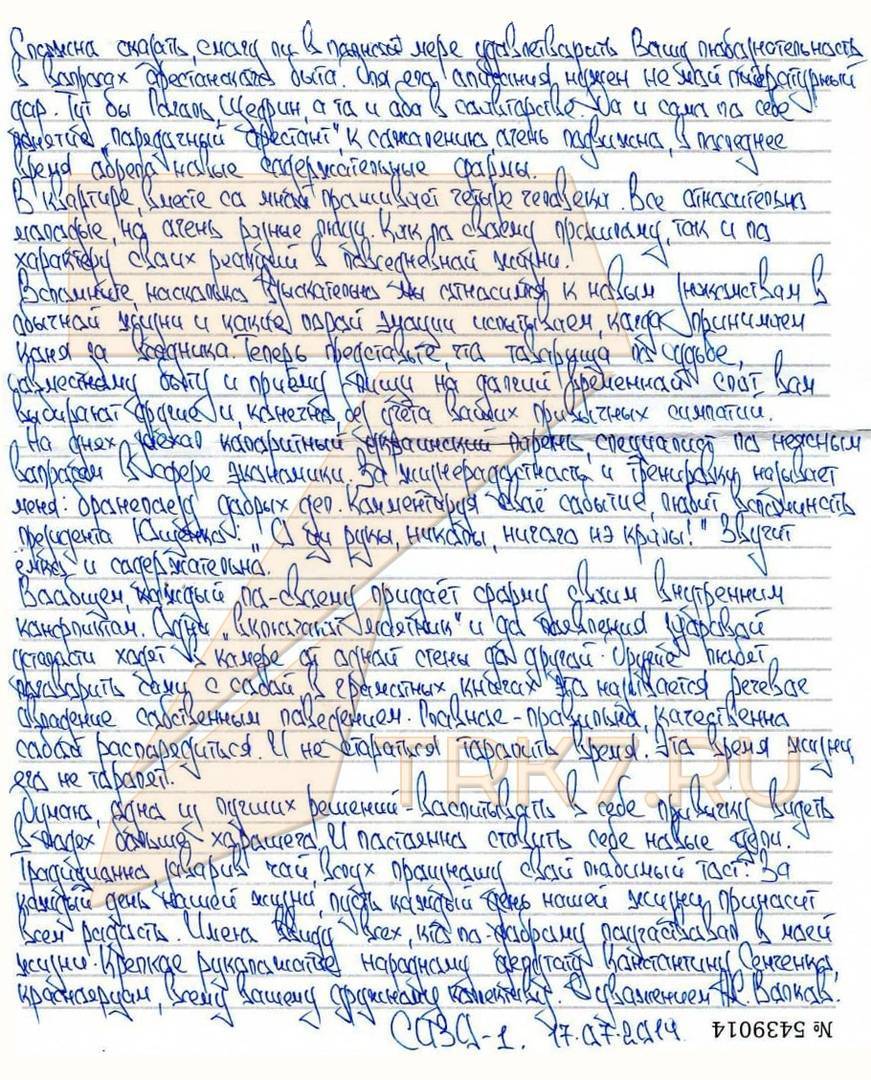 Сложно сказать, смогу ли в полной мере удовлетворить Вашу любознательность
в вопросах арестантского быта. Для его описания нужен не мой литературный
дар. Тут бы Гоголь, Щедрин, а то и оба в соавторстве. Да и само по себе
понятие „порядочный арестант", к сожалению, очень подвижно, в последнее
время обрело новые содержательные формы.
В квартире, вместе со мной проживает четыре человека. Все относительно
молодые, но очень разные люди. Как по своему прошлому, так и по
характеру своих реакций в повседневной жизни.
Вспомните, насколько взыскательно мы относимся к новым знакомствам в
обычной жизни и какие порой эмоции испытываем, когда принимаем
коня за всадника. Теперь представьте, что товарища по судьбе,
совместному быту и приёму пищи на долгий временной слот вам
выбирают другие и, конечно, без учёта ваших привычных симпатий.
На днях заехал колоритный украинский парень, специалист по неясным
вопросам в сфере экономики. За жизнерадостность и тренировки называет
меня: бронепоезд добрых дел. Комментируя своё событие, любит вспоминать
президента Ющенко: „О ци рукы, николы, ничого нэ кралы!" Звучит
ёмко и содержательно.
Вообщем, каждый по-своему придаёт форму своим внутренним
конфликтам. Одни „включают маятник" и до появления здоровой
усталости ходят в камере от одной стены до другой. Другие любят
поговорить сами с собой, в грамотных книгах это называется речевое
овладение собственным поведением. Главное - правильно, качественно
собой распорядиться. И не стараться торопить время. Это время жизни,
его не торопят.
Думаю, одно из лучших решений - воспитывать в себе привычку видеть
в людях больше хорошего. И постоянно ставить себе новые цели.
Традиционно, заварив чай, вслух произношу свой любимый тост: За
каждый день нашей жизни, пусть каждый день нашей жизни приносит
всем радость. Имею ввиду всех, кто по-доброму поучаствовал в моей
жизни. Крепкое рукопожатие народному депутату Константину Сенченко,
красноярцам, всему вашему дружному коллективу. С уважением, Волков.
СИЗО-1. 17.07.2014
№ 5439014
TRK7.RU